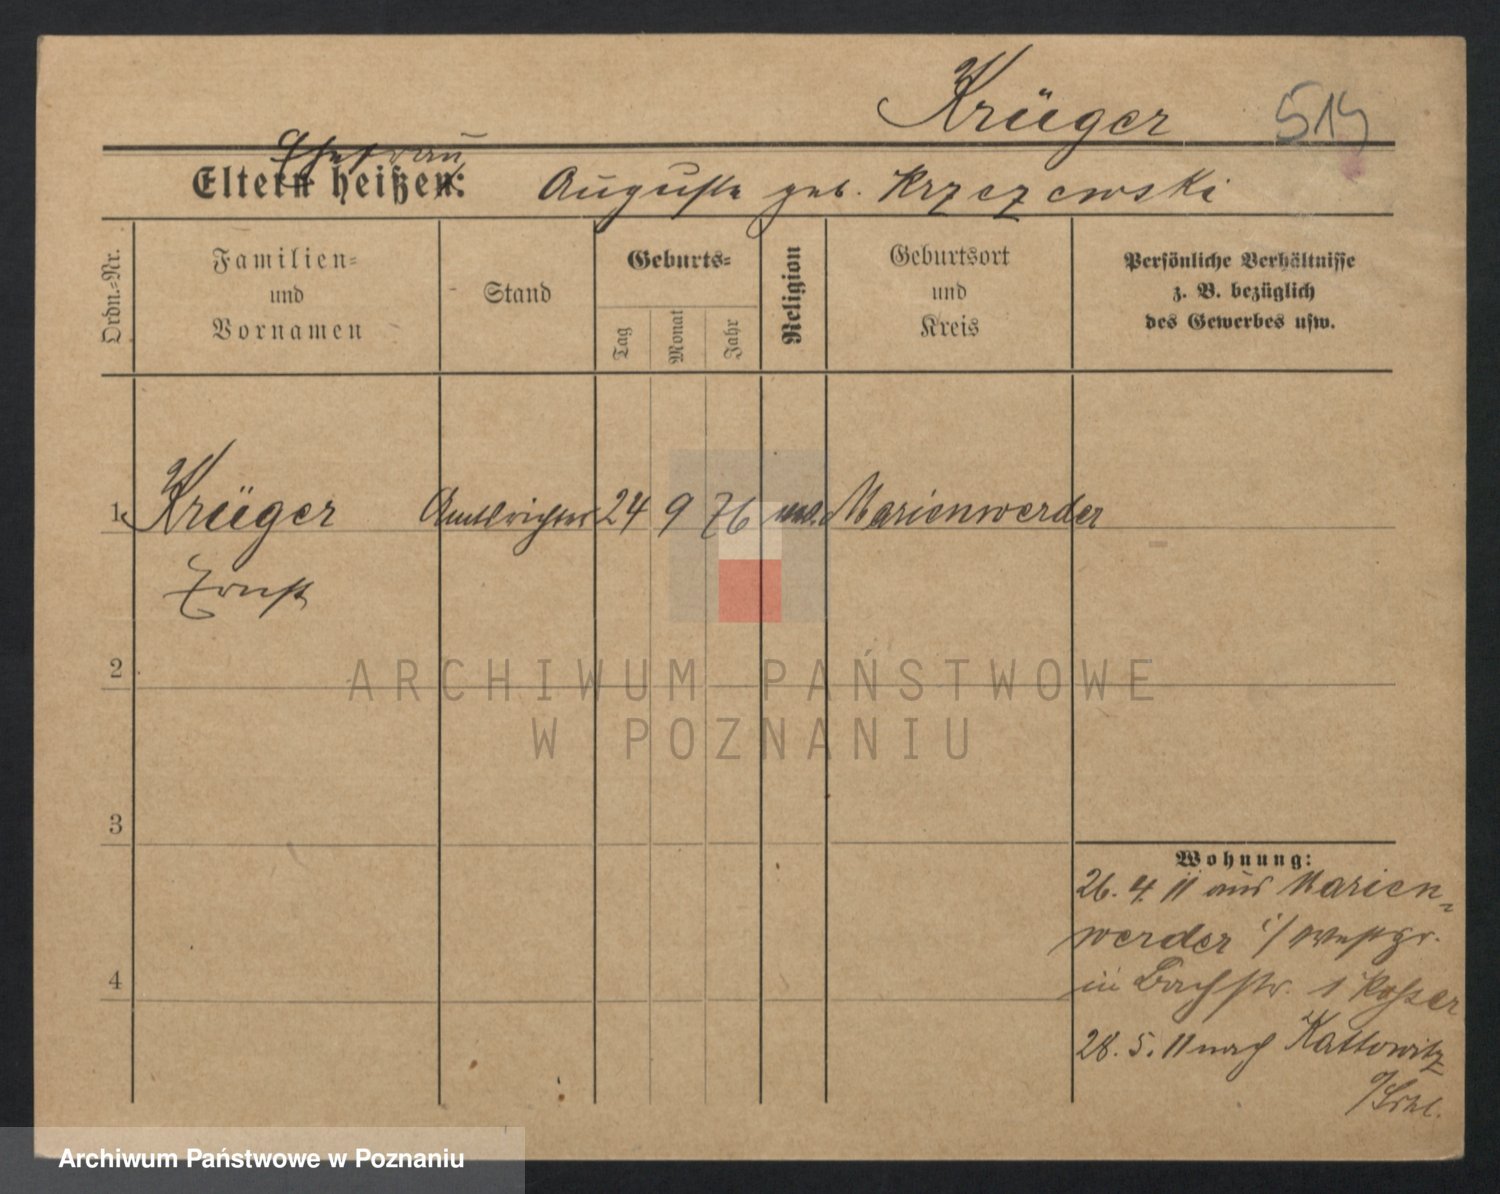 Krüger 514
Ehefrau
Eltern heißen: Auguste geb. Krzezewski
Ordn.-Nr.
Familien-
und
Vornamen
Stand
Geburts-
Tag
Monat
Jahr
Religion
Geburtsort
und
Kreis
Persönliche Verhältnisse
z. B. bezüglich
des Gewerbes usw.
1 Krüger Amtsrichter 24 9 76 Marienwerder
Ernst
2
3
4
Wohnung:
26. 4. 11 aus Marien-
werder i/ Westpr.
in Bachstr. 1
28. 5. 11 nach Kattowitz
ARCHIWUM PAŃSTWOWE
W POZNANIU
Archiwum Państwowe w Poznaniu